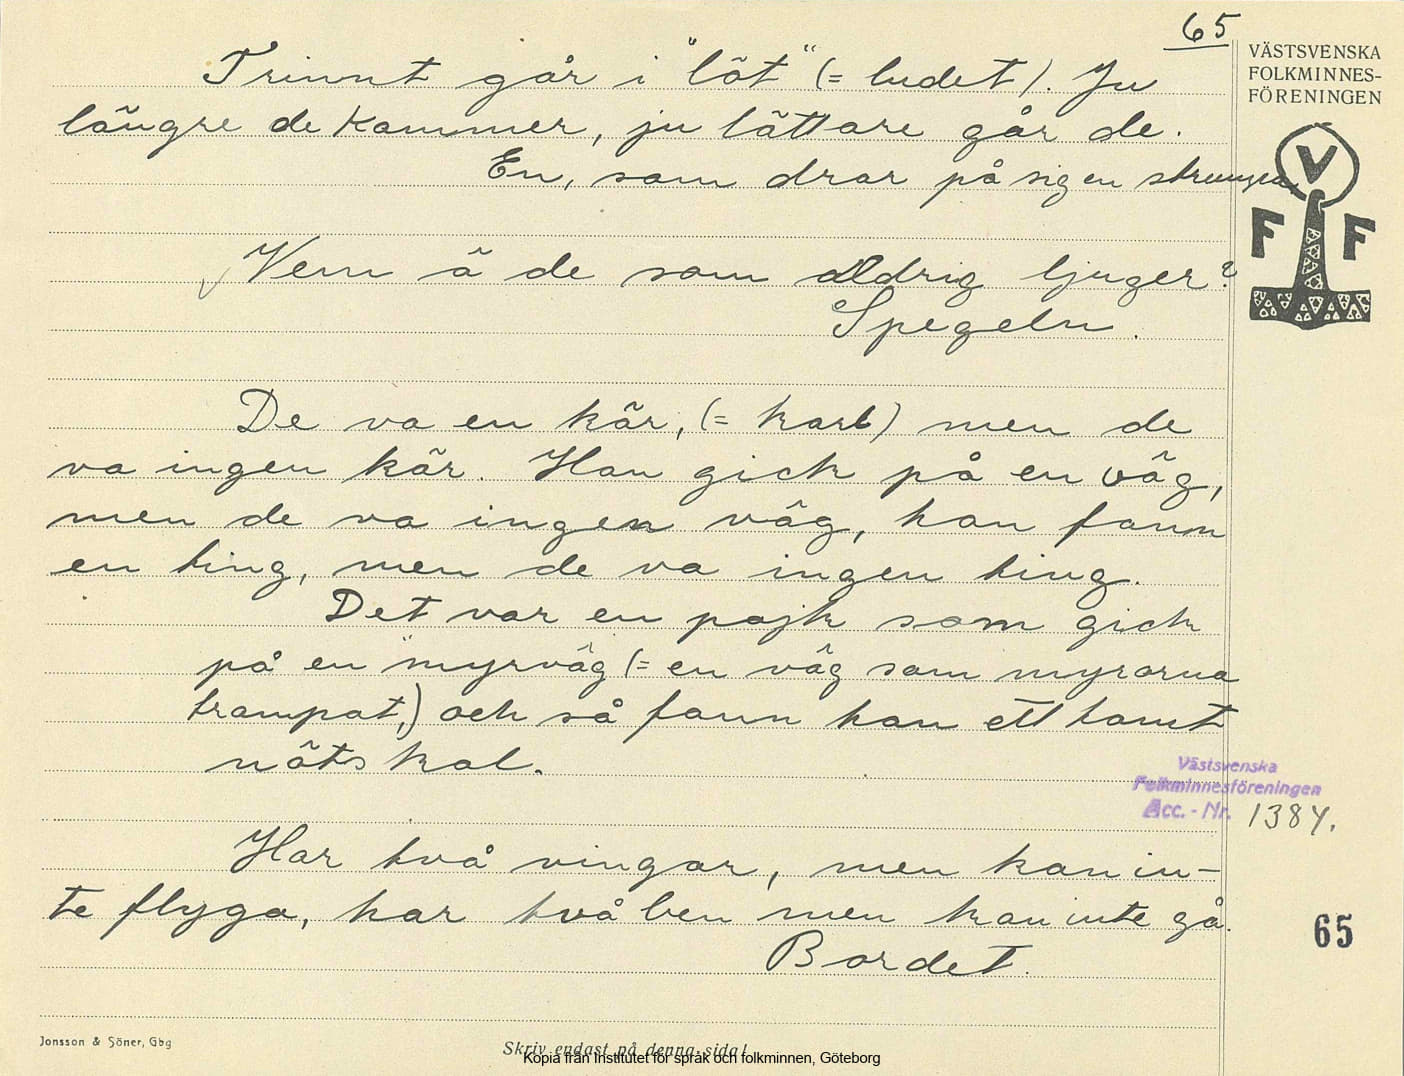 65
VÄSTSVENSKA
FOLKMINNES-
FÖRENINGEN
Trinnt går i "löt" (= ludet). Ju
längre de kommer, ju lättare går de.
En, som drar på sig en strumpa.
V
F F
Vem ä de som alldrig ljuger?
Spegeln.
De va en kär, (= karl) men de
va ingen kär. Han gick på en väg,
men de va ingen väg, han fann
en ting, men de va ingen ting.
Det var en pojk som gick
på en "myrväg (= en väg som myrorna
trampat,) och så fann han ett tomt
nötskal.
Västsvenska
Folkminnesföreningen
Acc. - Nr. 1384.
Har två vingar, men kan in-
te flyga, har två ben men kan inte gå.
65
Bordet.
Jonsson & Söner, Gbg
Skriv endast på denna sida!
Kopia från Institutet för språk och folkminnen, Göteborg